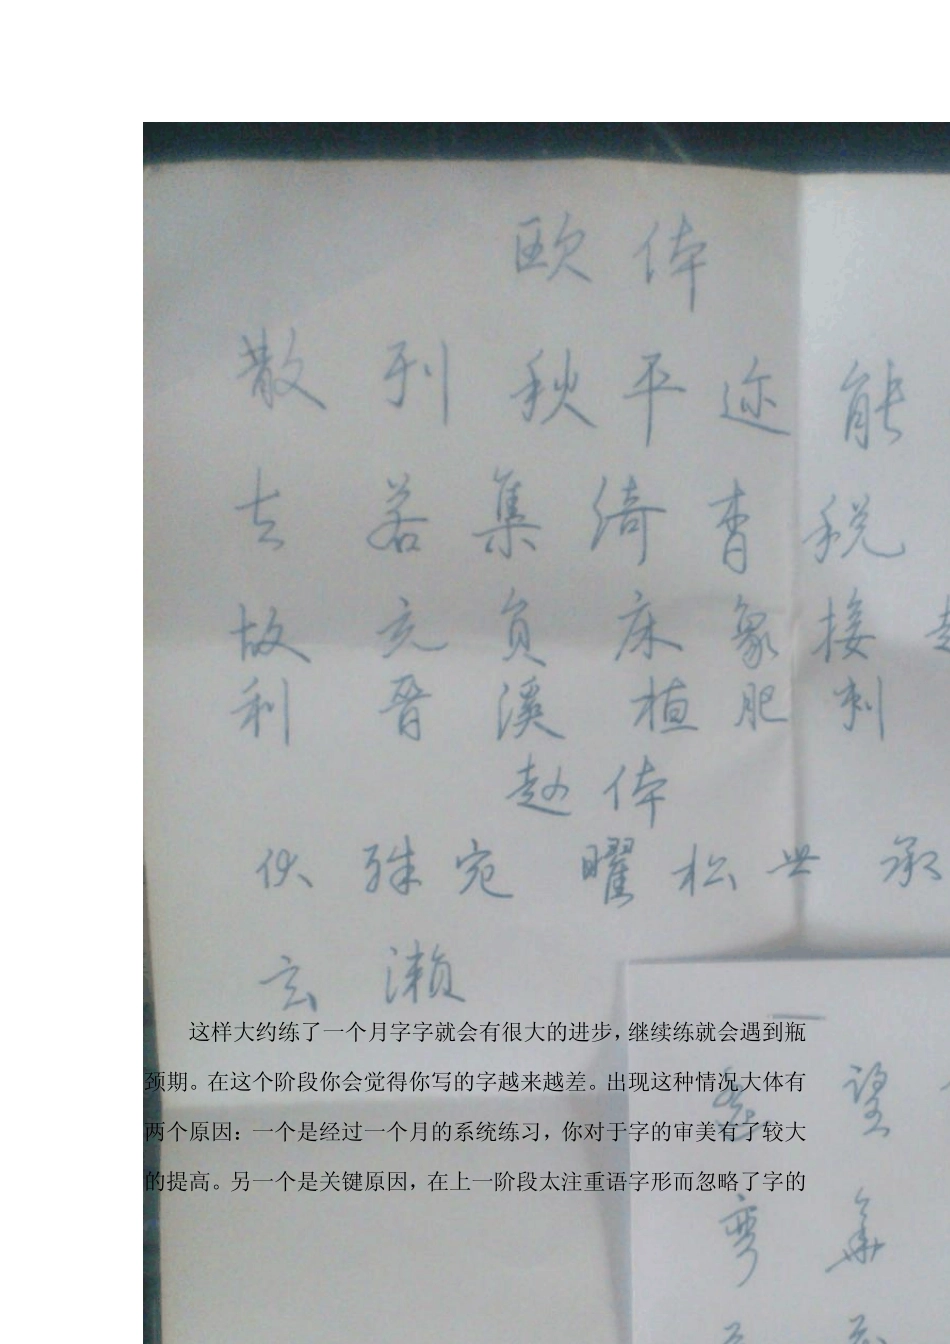 欧体
散 列 秋 平 迹 能
去 若 集 绮 胄 税
故 充 负 床 象 接
利 晋 溪 植 肥 刺
赵体
伙 殊 宛 曜 松 世 承
玄 濑
这样大约练了一个月字字就会有很大的进步，继续练就会遇到瓶
颈期。在这个阶段你会觉得你写的字越来越差。出现这种情况大体有
两个原因：一个是经过一个月的系统练习，你对于字的审美有了较大
的提高。另一个是关键原因，在上一阶段太注重语字形而忽略了字的
望
弯